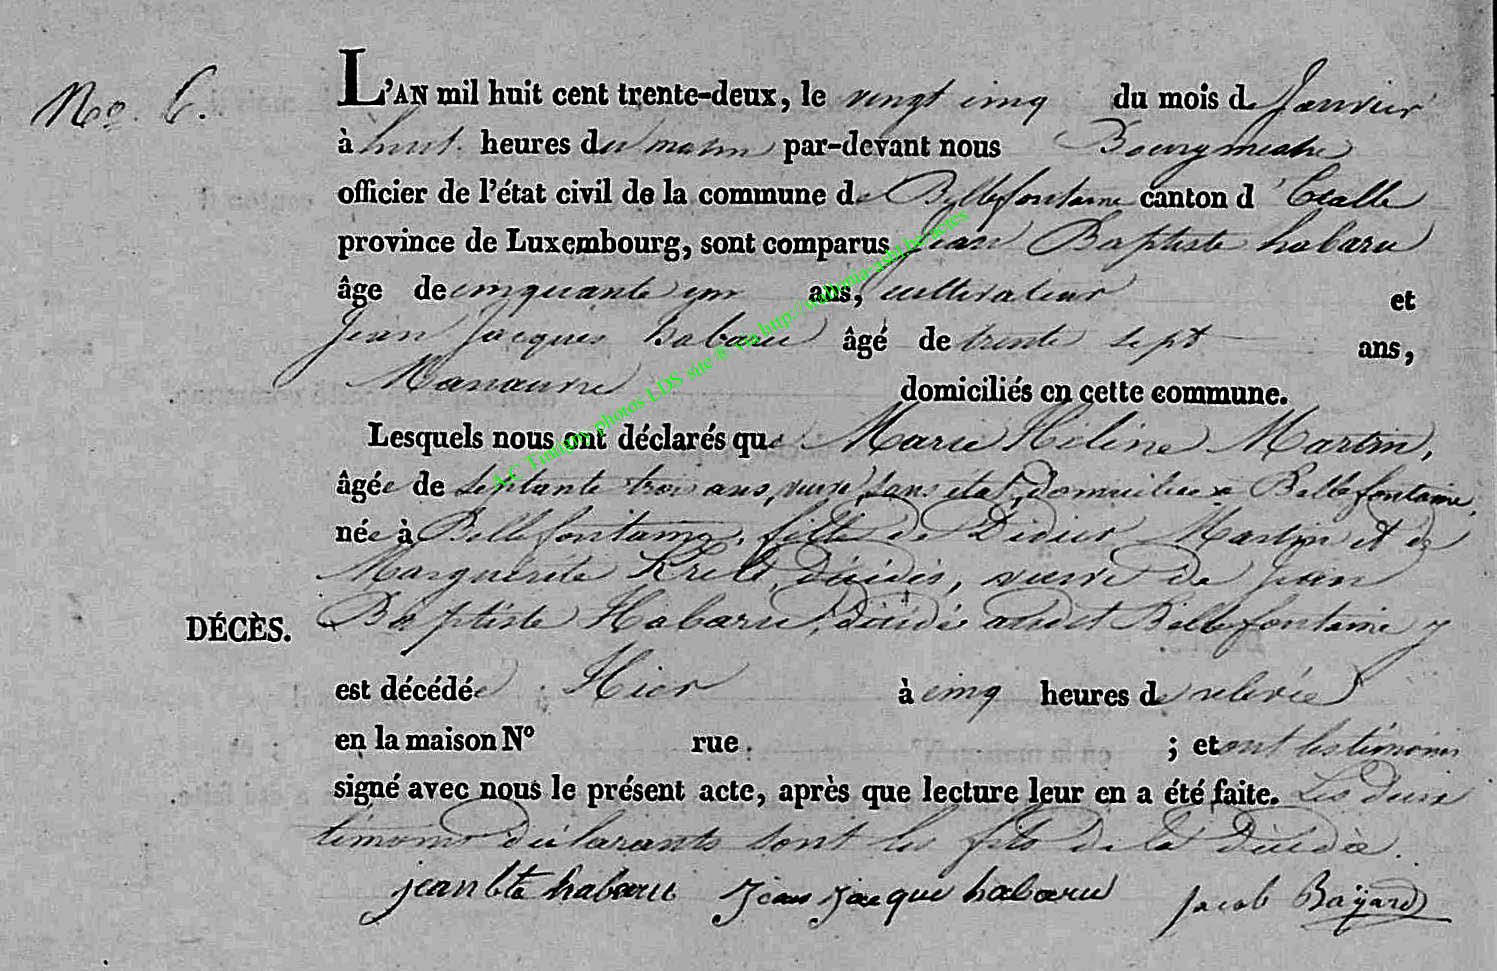 No. 6.
L'AN mil huit cent trente-deux, le vingt cinq du mois de Janvier
à huit heures du matin par-devant nous Bourgmestre
officier de l'état civil de la commune de Bellefontaine canton d'Etalle
province de Luxembourg, sont comparus Jean Baptiste habaru
âge de cinquante un ans, cultivateur et
Jean Jacques habaru âgé de trente sept ans,
Manœuvre domiciliés en cette commune.
Lesquels nous ont déclarés que Marie Héline Martin,
âgée de septante trois ans, veuve, sans état, domiciliée à Bellefontaine,
née à Bellefontaine, fille de Didier Martin et de
Marguerite décédés, veuve de Jean
DÉCÈS. Baptiste Habaru, décédé audit Bellefontaine
est décédée Hier à cinq heures de relevée
en la maison N° rue ; et ont les témoins
signé avec nous le présent acte, après que lecture leur en a été faite. Les deux
témoins déclarants sont les fils de la décédée.
jean bte habaru Jean jacque habaru Jacob Bayard
A.C Tintigny photos LDS site ® via http://wallonia-asbl.be/actes